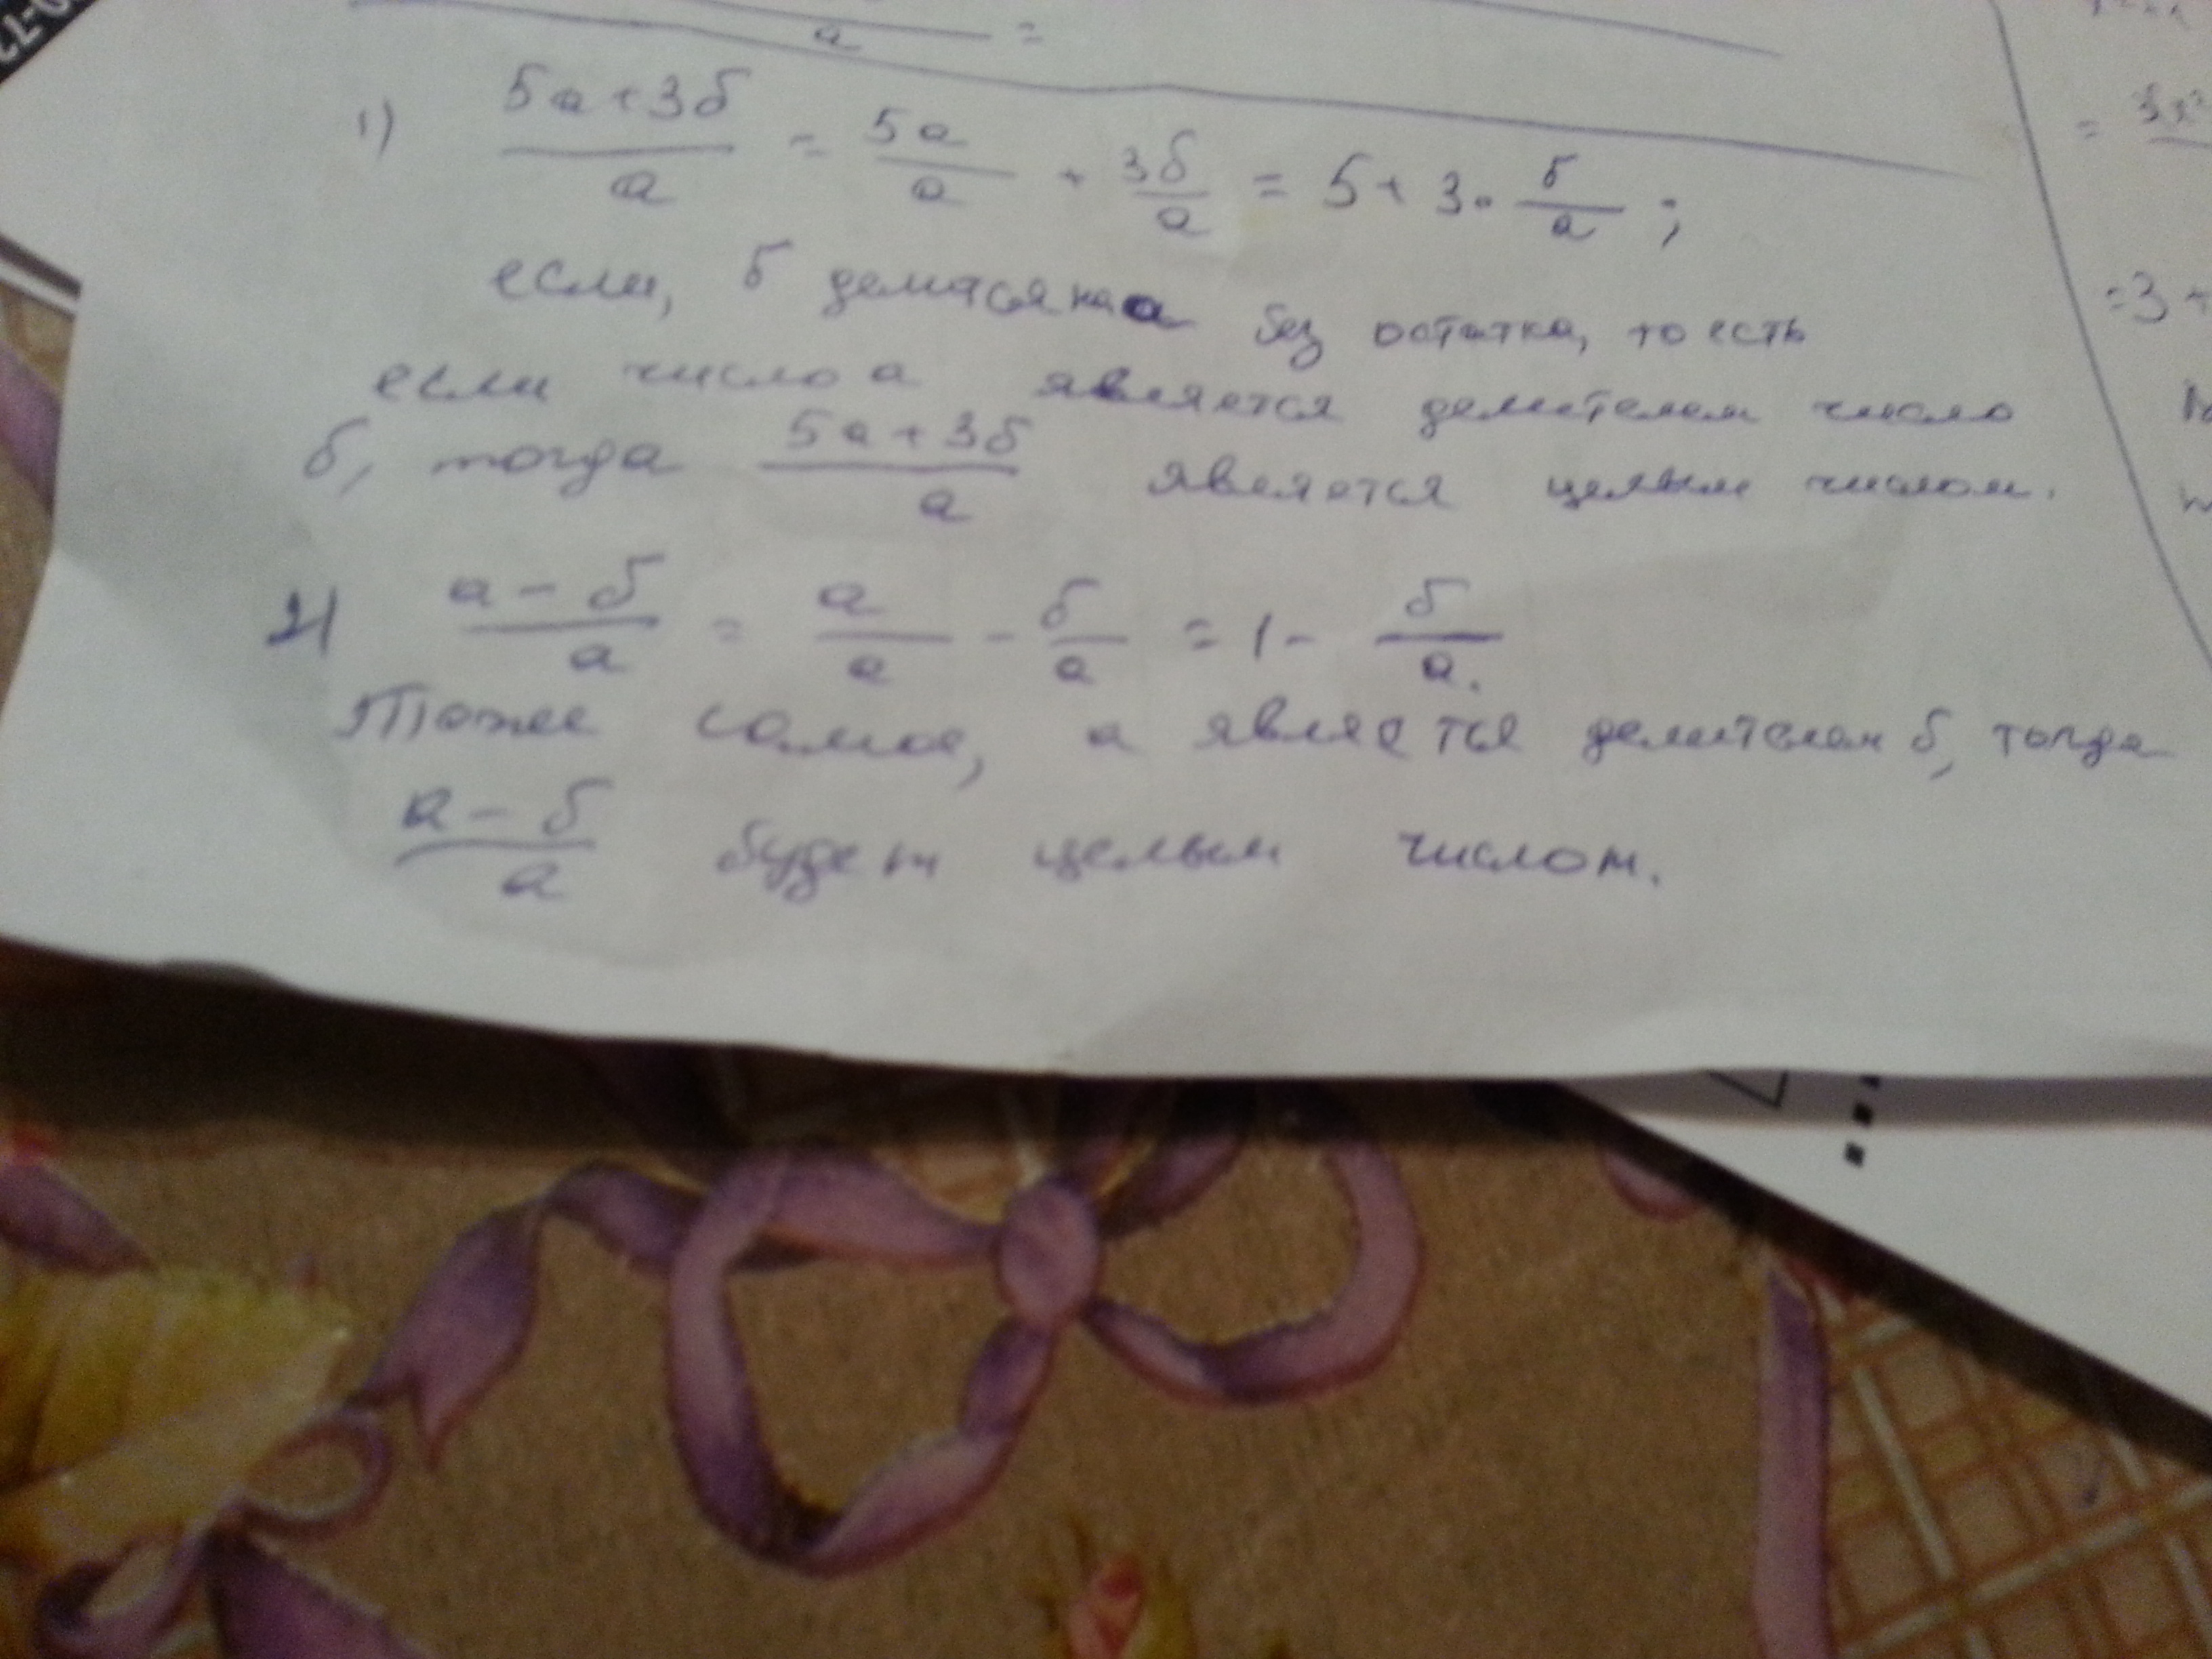 a =
1) (5a+3б)/a = 5a/a + 3б/a = 5 + 3·б/a ;
если, б делится на a без остатка, то есть
если число a является делителем число
б, тогда (5a+3б)/a является целым числом.
2) (a-б)/a = a/a - б/a = 1 - б/a.
Тоже самое, a является делителем б, тогда
(a-б)/a будет целым числом.
=3+